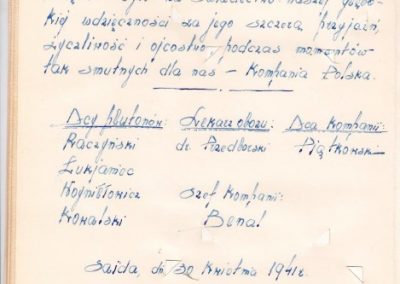 kiej wdzięczności za jego szczerą przyjaźń,
życzliwość i ojcostwo, podczas momentów
tak smutnych dla nas – Kompania Polska.
Dcy plutonów: Lekarz obozu: Dca Kompanii:
Raczyński dr. Przedborski Piątkowski
Łukjaniec
Wojniłłowicz Szef Kompanii:
Kowalski Benal
Saida, dn. 30 kwietnia 1941 r.